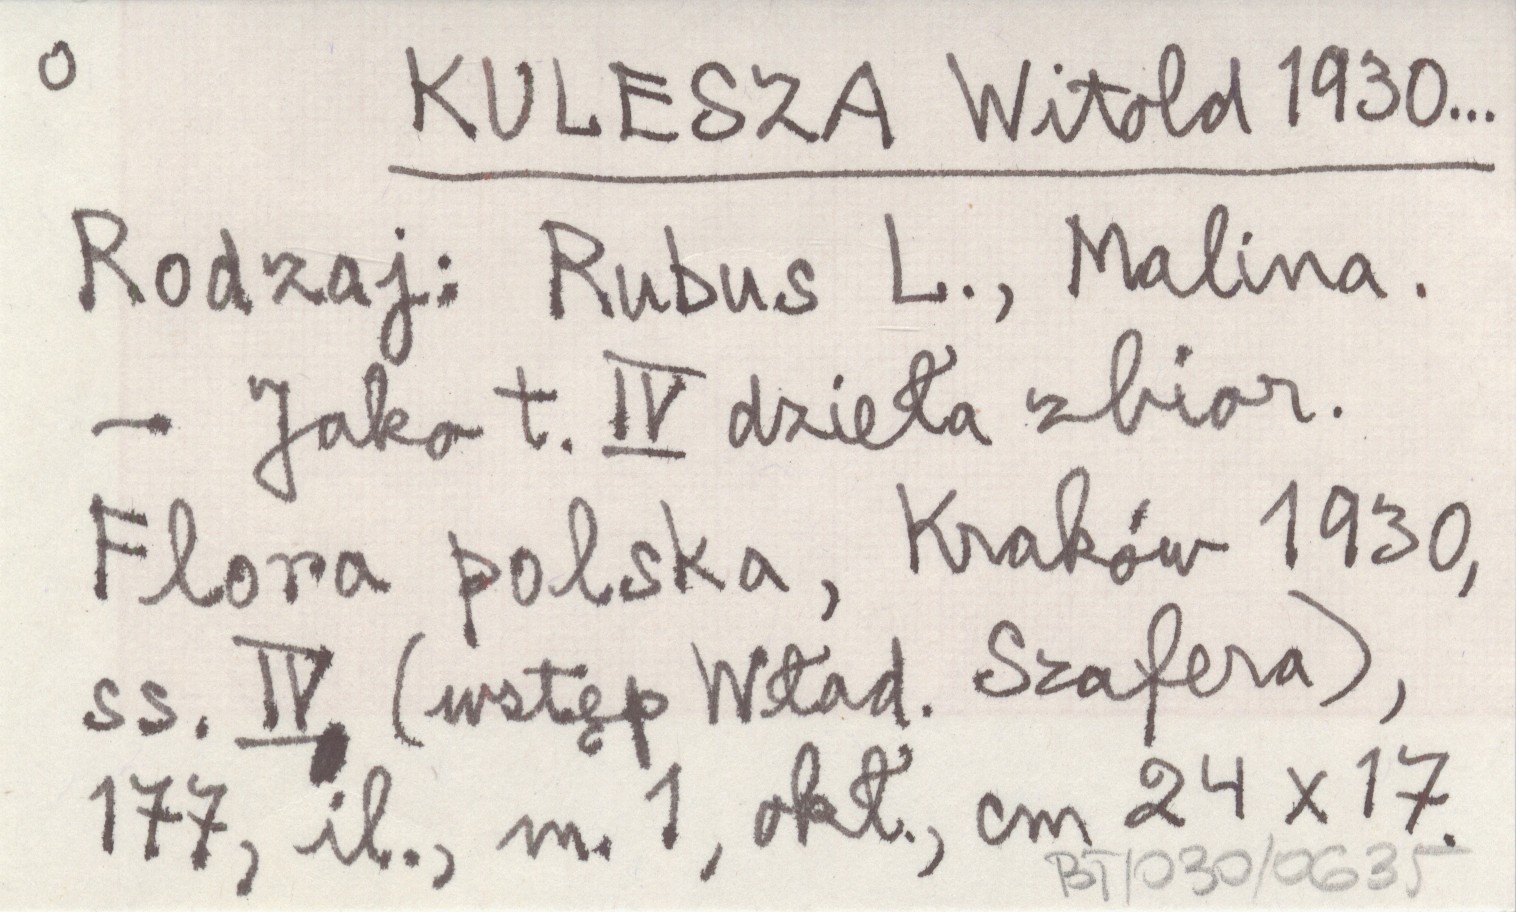 o KULESZA Witold 1930...
Rodzaj: Rubus L., Malina.
- Jako t. IV dzieła zbior.
Flora polska, Kraków 1930,
ss. IV, (wstęp Wład. Szafera),
177, il., m. 1, okł., cm 24 x 17.
BT/030/0635